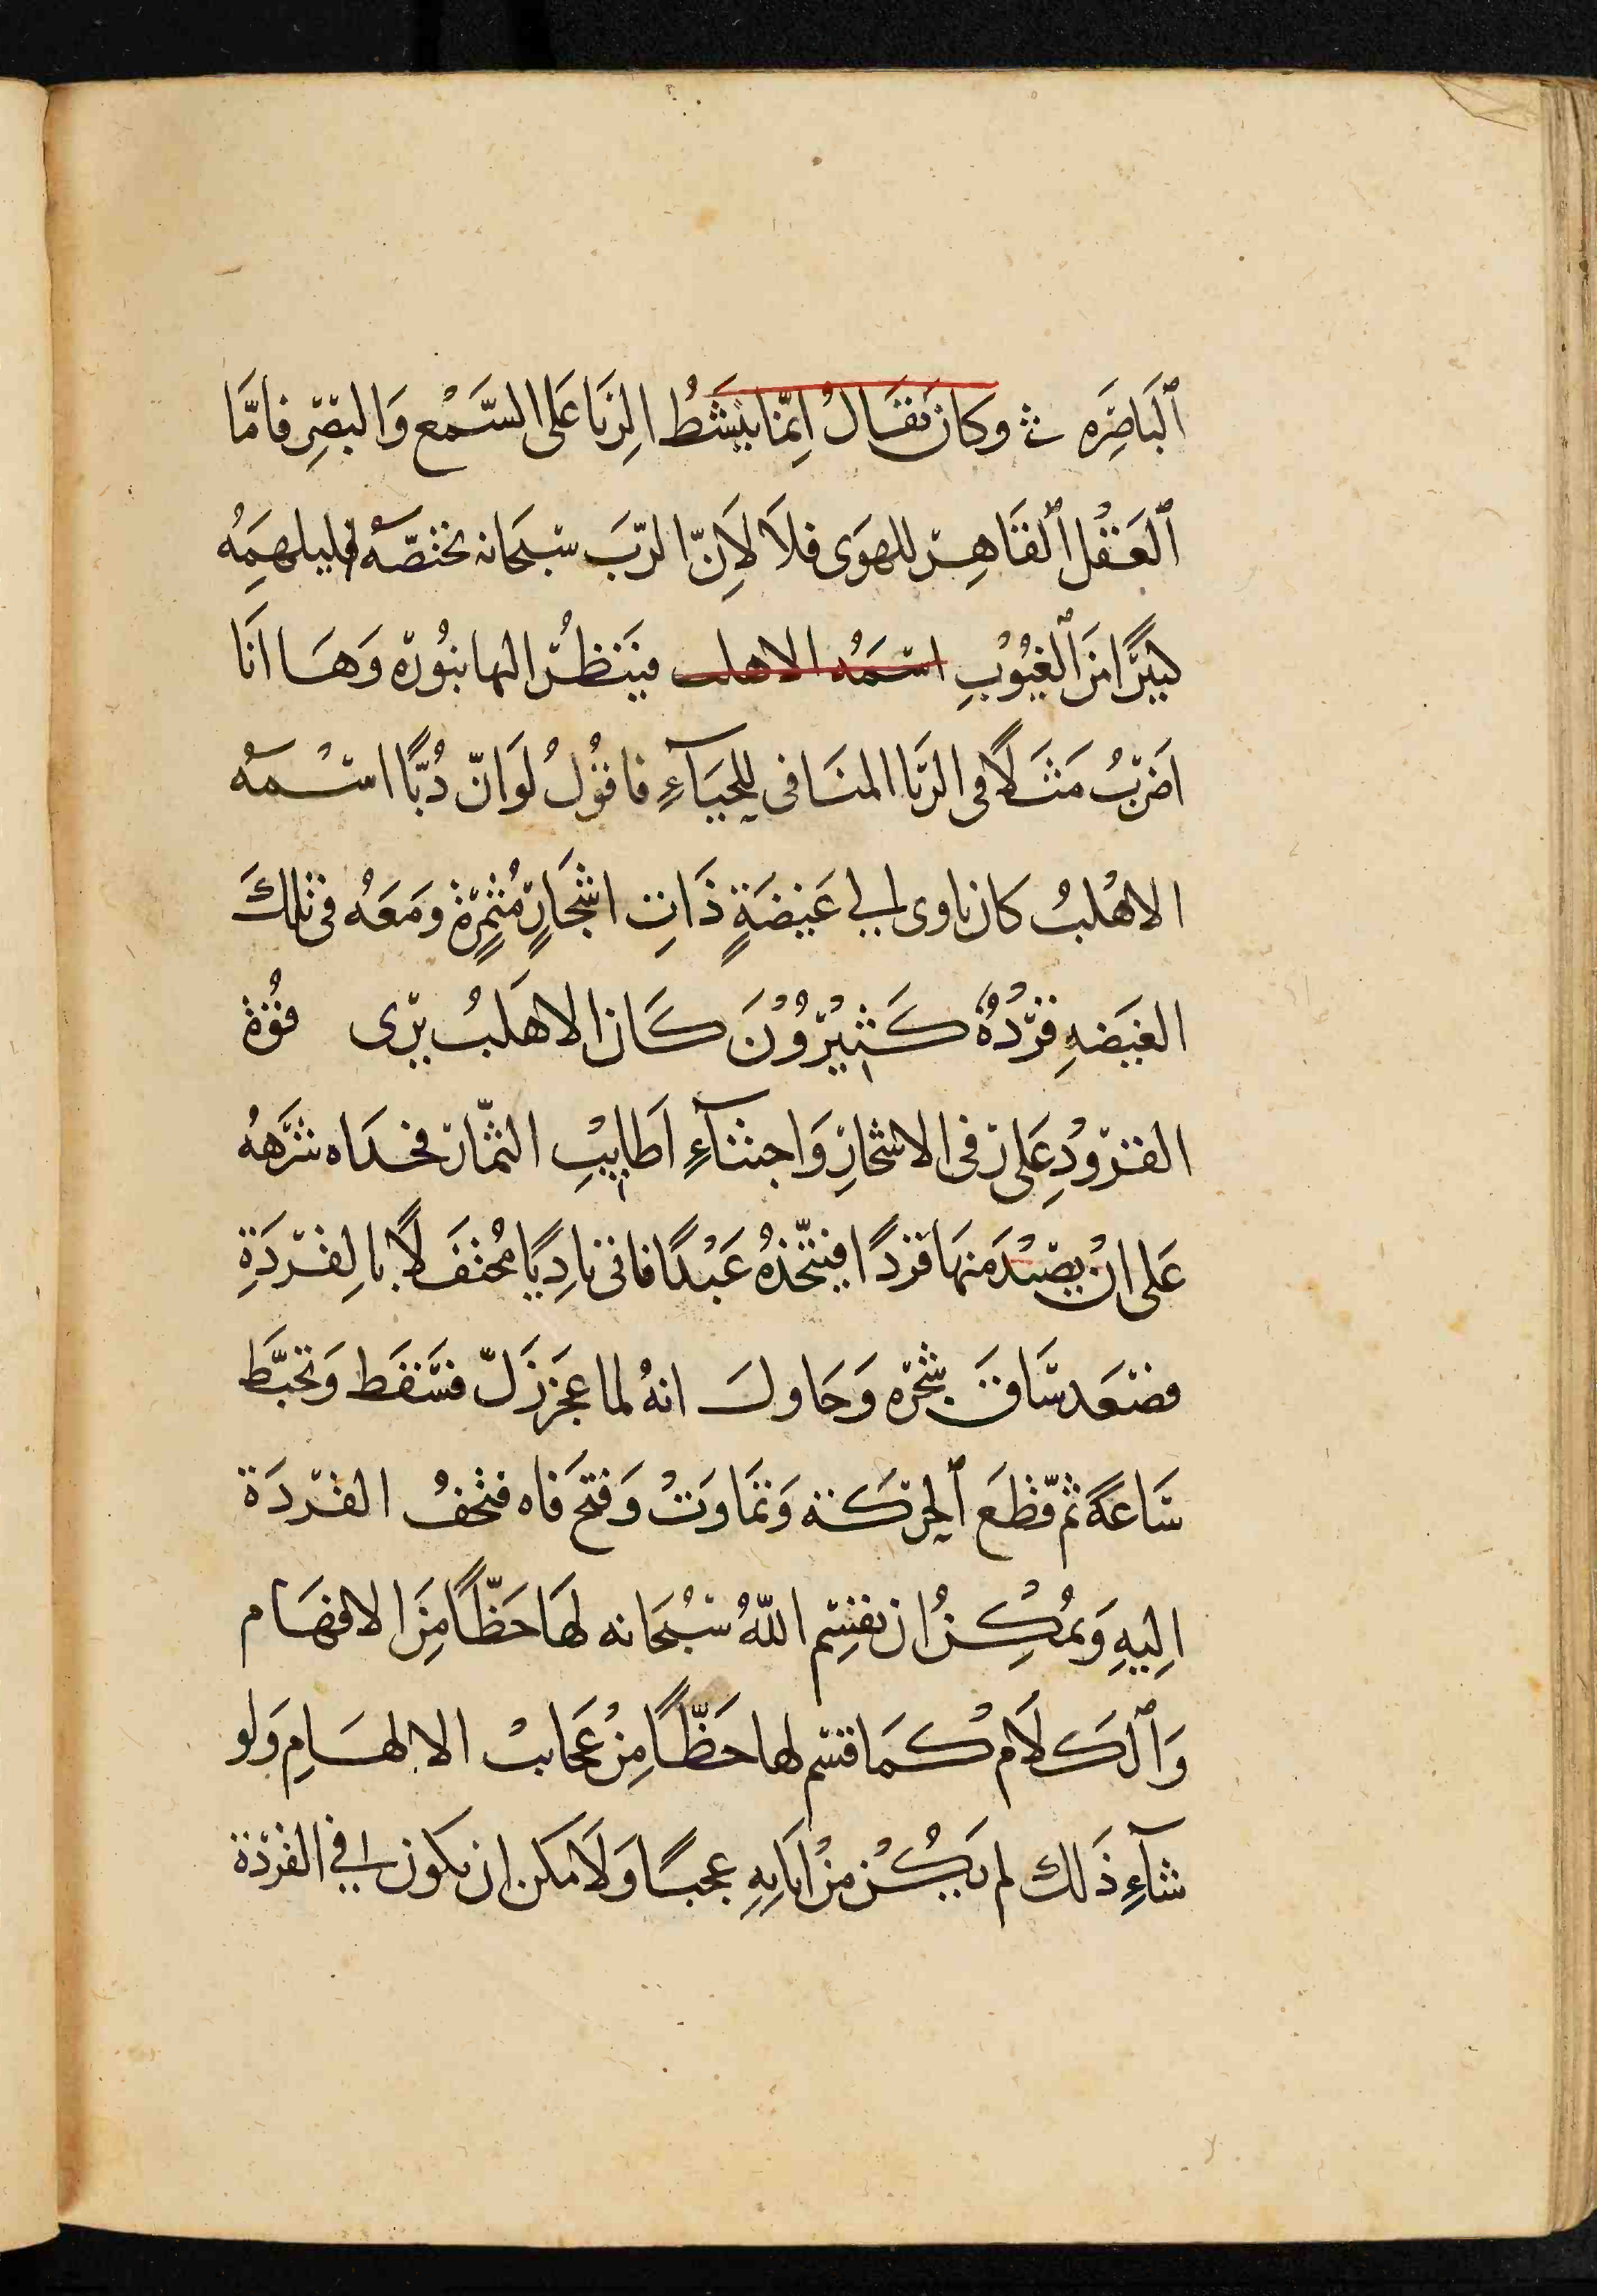 ٱلبَاصِرَه وكان يقَالُ اِنّما ينشَطُ الرِيَا عَلى السَّمْع وَالبصَرِ فامَّا
ٱلعَقْل ٱلقَاهِر للهوَى فلَا لَاِنّ الربَّ سبحَانه يختصّه ويلهمَهُ
كبيرًا منَ ٱلغيُوْبِ اسمَهُ الاهلب فيَنظُر اليها بنُوره وَهَا انَا
اضربُ مَثَلًا فى الريَا المنَافى للحيَآءِ فاقوُلُ لوَانّ دُبًّا اسْمه
الاهْلبُ كان ياوى الى غَيضَةٍ ذَاتِ اشجَارٍ مُثمِرةٍ ومَعَهُ فى تلكَ
الغيضهِ قرْدُهٌ كَثيْرُوْنَ كَان الاهَلبُ يرى قوُة
القرُودِ عَلى فى الاشجارِ وَاجتنَآءِ اَطَاييْبِ الثمّار فحدَاه شَرَههُ
عَلى انْ يصيْدَ منهَا قردًا فيتّخذهُ عَبْدًا فاتى نادِيًا مُحتفَلًا بالِقردَةِ
فصَعَد سَاقَ شجره وَحَاولَ انهُ لما عجزَ زَلّ فسَقَط وَتخبّط
سَاعَةً ثم قطَعَ ٱلحركَته وَتمَاوَتُ وَفتحَ فَاه فتحفُ القردَة
اليهِ وَيمُكِنُ ان يقسِم اللهُ سُبْحَانه لهَا حَظّاً مِنَ الافهَام
وَٱلكَلَام كمَا قسَم لها حَظّاً مِنْ عَجَايبْ الالهَامِ وَلو
شآءِ ذَلك لم يَكُنْ منْ ايَايهِ عجبًا وَلَا مكن ان يكون فى القردة